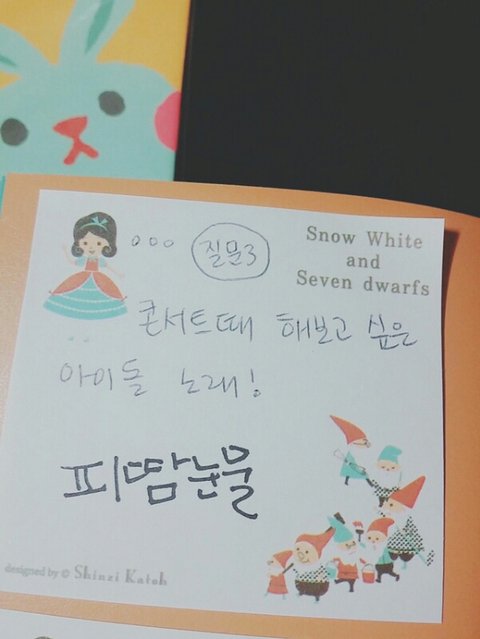 질문3
Snow White
and
Seven dwarfs
콘서트때 해보고 싶은
아이돌 노래!
피땀눈물
designed by © Shinzi Katoh